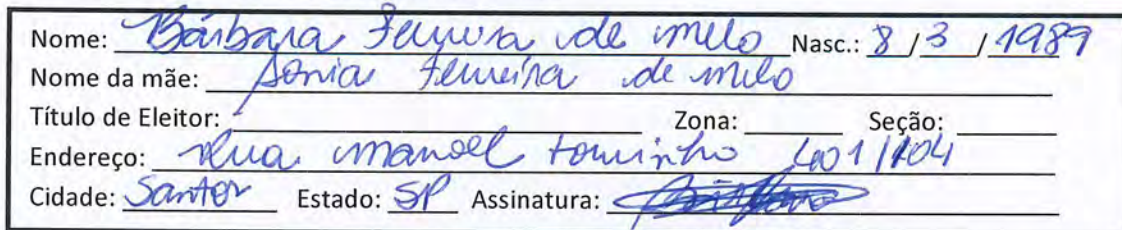 Nome: Bárbara Ferreira de melo Nasc.: 8/3/1989
Nome da mãe: Sonia Ferreira de melo
Título de Eleitor: Zona: Seção:
Endereço: Rua manoel tourinho 401/104
Cidade: Santos Estado: SP Assinatura: